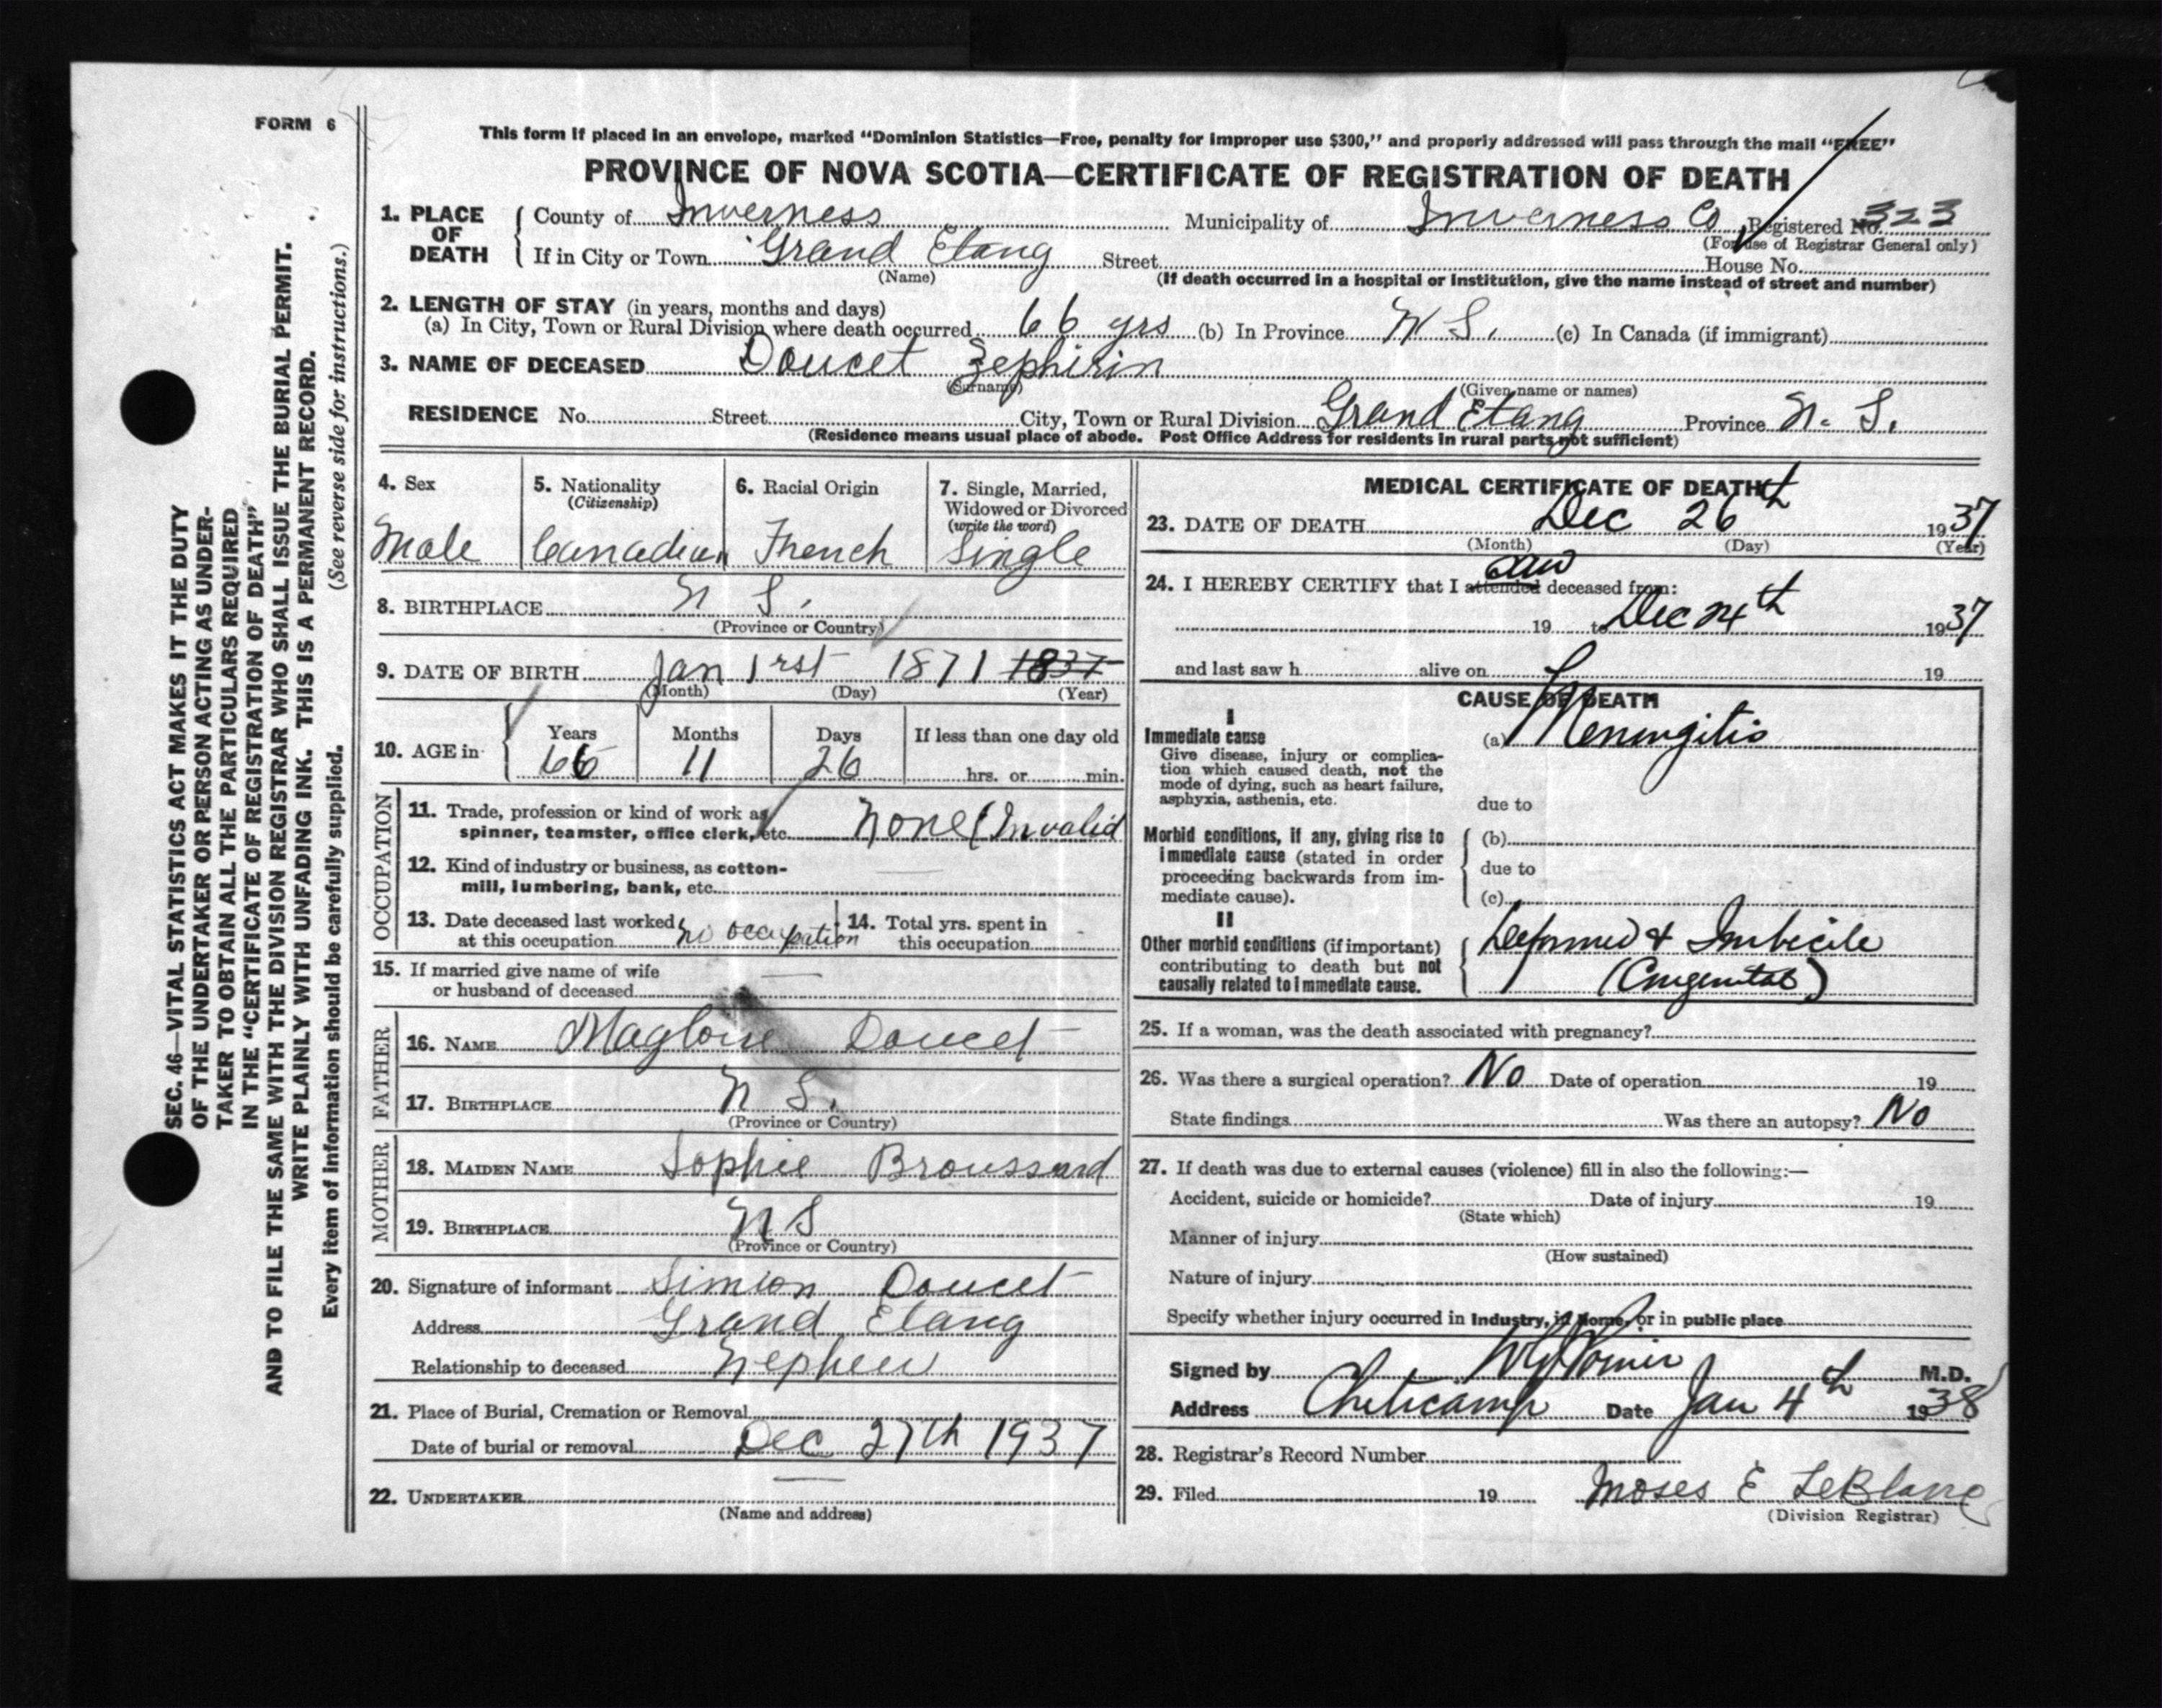 FORM 6
This form if placed in an envelope, marked "Dominion Statistics—Free, penalty for improper use $300," and properly addressed will pass through the mail "FREE"
PROVINCE OF NOVA SCOTIA—CERTIFICATE OF REGISTRATION OF DEATH
1. PLACE OF DEATH County of Inverness Municipality of Inverness Co Registered No. 323
(For use of Registrar General only)
If in City or Town Grand Etang Street House No.
(Name) (If death occurred in a hospital or institution, give the name instead of street and number)
2. LENGTH OF STAY (in years, months and days)
(a) In City, Town or Rural Division where death occurred 66 yrs (b) In Province N S. (c) In Canada (if immigrant)
3. NAME OF DECEASED Doucet Zephirin
(Surname) (Given name or names)
RESIDENCE No. Street City, Town or Rural Division Grand Etang Province N. S.
(Residence means usual place of abode. Post Office Address for residents in rural parts not sufficient)
4. Sex
Male
5. Nationality
(Citizenship)
Canadian
6. Racial Origin
French
7. Single, Married,
Widowed or Divorced
(write the word)
Single
8. BIRTHPLACE N S.
(Province or Country)
9. DATE OF BIRTH Jan 1rst 1871 1837
(Month) (Day) (Year)
10. AGE in
Years Months Days If less than one day old
66 11 26 hrs. or min.
OCCUPATION
11. Trade, profession or kind of work as
spinner, teamster, office clerk, etc. None (Invalid
12. Kind of industry or business, as cotton-
mill, lumbering, bank, etc.
13. Date deceased last worked
at this occupation no occupation
14. Total yrs. spent in
this occupation
15. If married give name of wife
or husband of deceased
FATHER
16. NAME Magloire Doucet
17. BIRTHPLACE N S.
(Province or Country)
MOTHER
18. MAIDEN NAME Sophie Broussard
19. BIRTHPLACE N S
(Province or Country)
20. Signature of informant Simion Doucet
Address Grand Etang
Relationship to deceased Nephew
21. Place of Burial, Cremation or Removal
Date of burial or removal Dec 27th 1937
22. UNDERTAKER
(Name and address)
MEDICAL CERTIFICATE OF DEATH
23. DATE OF DEATH Dec 26th 1937
(Month) (Day) (Year)
24. I HEREBY CERTIFY that I attended saw deceased from:
19 to Dec 24th 1937
and last saw h alive on 19
CAUSE OF DEATH
I
Immediate cause
Give disease, injury or complica-
tion which caused death, not the
mode of dying, such as heart failure,
asphyxia, asthenia, etc.
(a) Meningitis
due to
Morbid conditions, if any, giving rise to
immediate cause (stated in order
proceeding backwards from im-
mediate cause).
(b)
due to
(c)
II
Other morbid conditions (if important)
contributing to death but not
causally related to immediate cause.
Deformed & Imbicile
(Congenital)
25. If a woman, was the death associated with pregnancy?
26. Was there a surgical operation? No Date of operation 19
State findings Was there an autopsy? No
27. If death was due to external causes (violence) fill in also the following:—
Accident, suicide or homicide? Date of injury 19
(State which)
Manner of injury
(How sustained)
Nature of injury
Specify whether injury occurred in Industry, in Home, or in public place
Signed by M.D.
Address Cheticamp Date Jan 4th 1938
28. Registrar's Record Number
29. Filed 19 Moses E LeBlanc
(Division Registrar)
SEC. 46—VITAL STATISTICS ACT MAKES IT THE DUTY
OF THE UNDERTAKER OR PERSON ACTING AS UNDER-
TAKER TO OBTAIN ALL THE PARTICULARS REQUIRED
IN THE "CERTIFICATE OF REGISTRATION OF DEATH"
AND TO FILE THE SAME WITH THE DIVISION REGISTRAR WHO SHALL ISSUE THE BURIAL PERMIT.
WRITE PLAINLY WITH UNFADING INK. THIS IS A PERMANENT RECORD.
Every item of information should be carefully supplied. (See reverse side for instructions.)